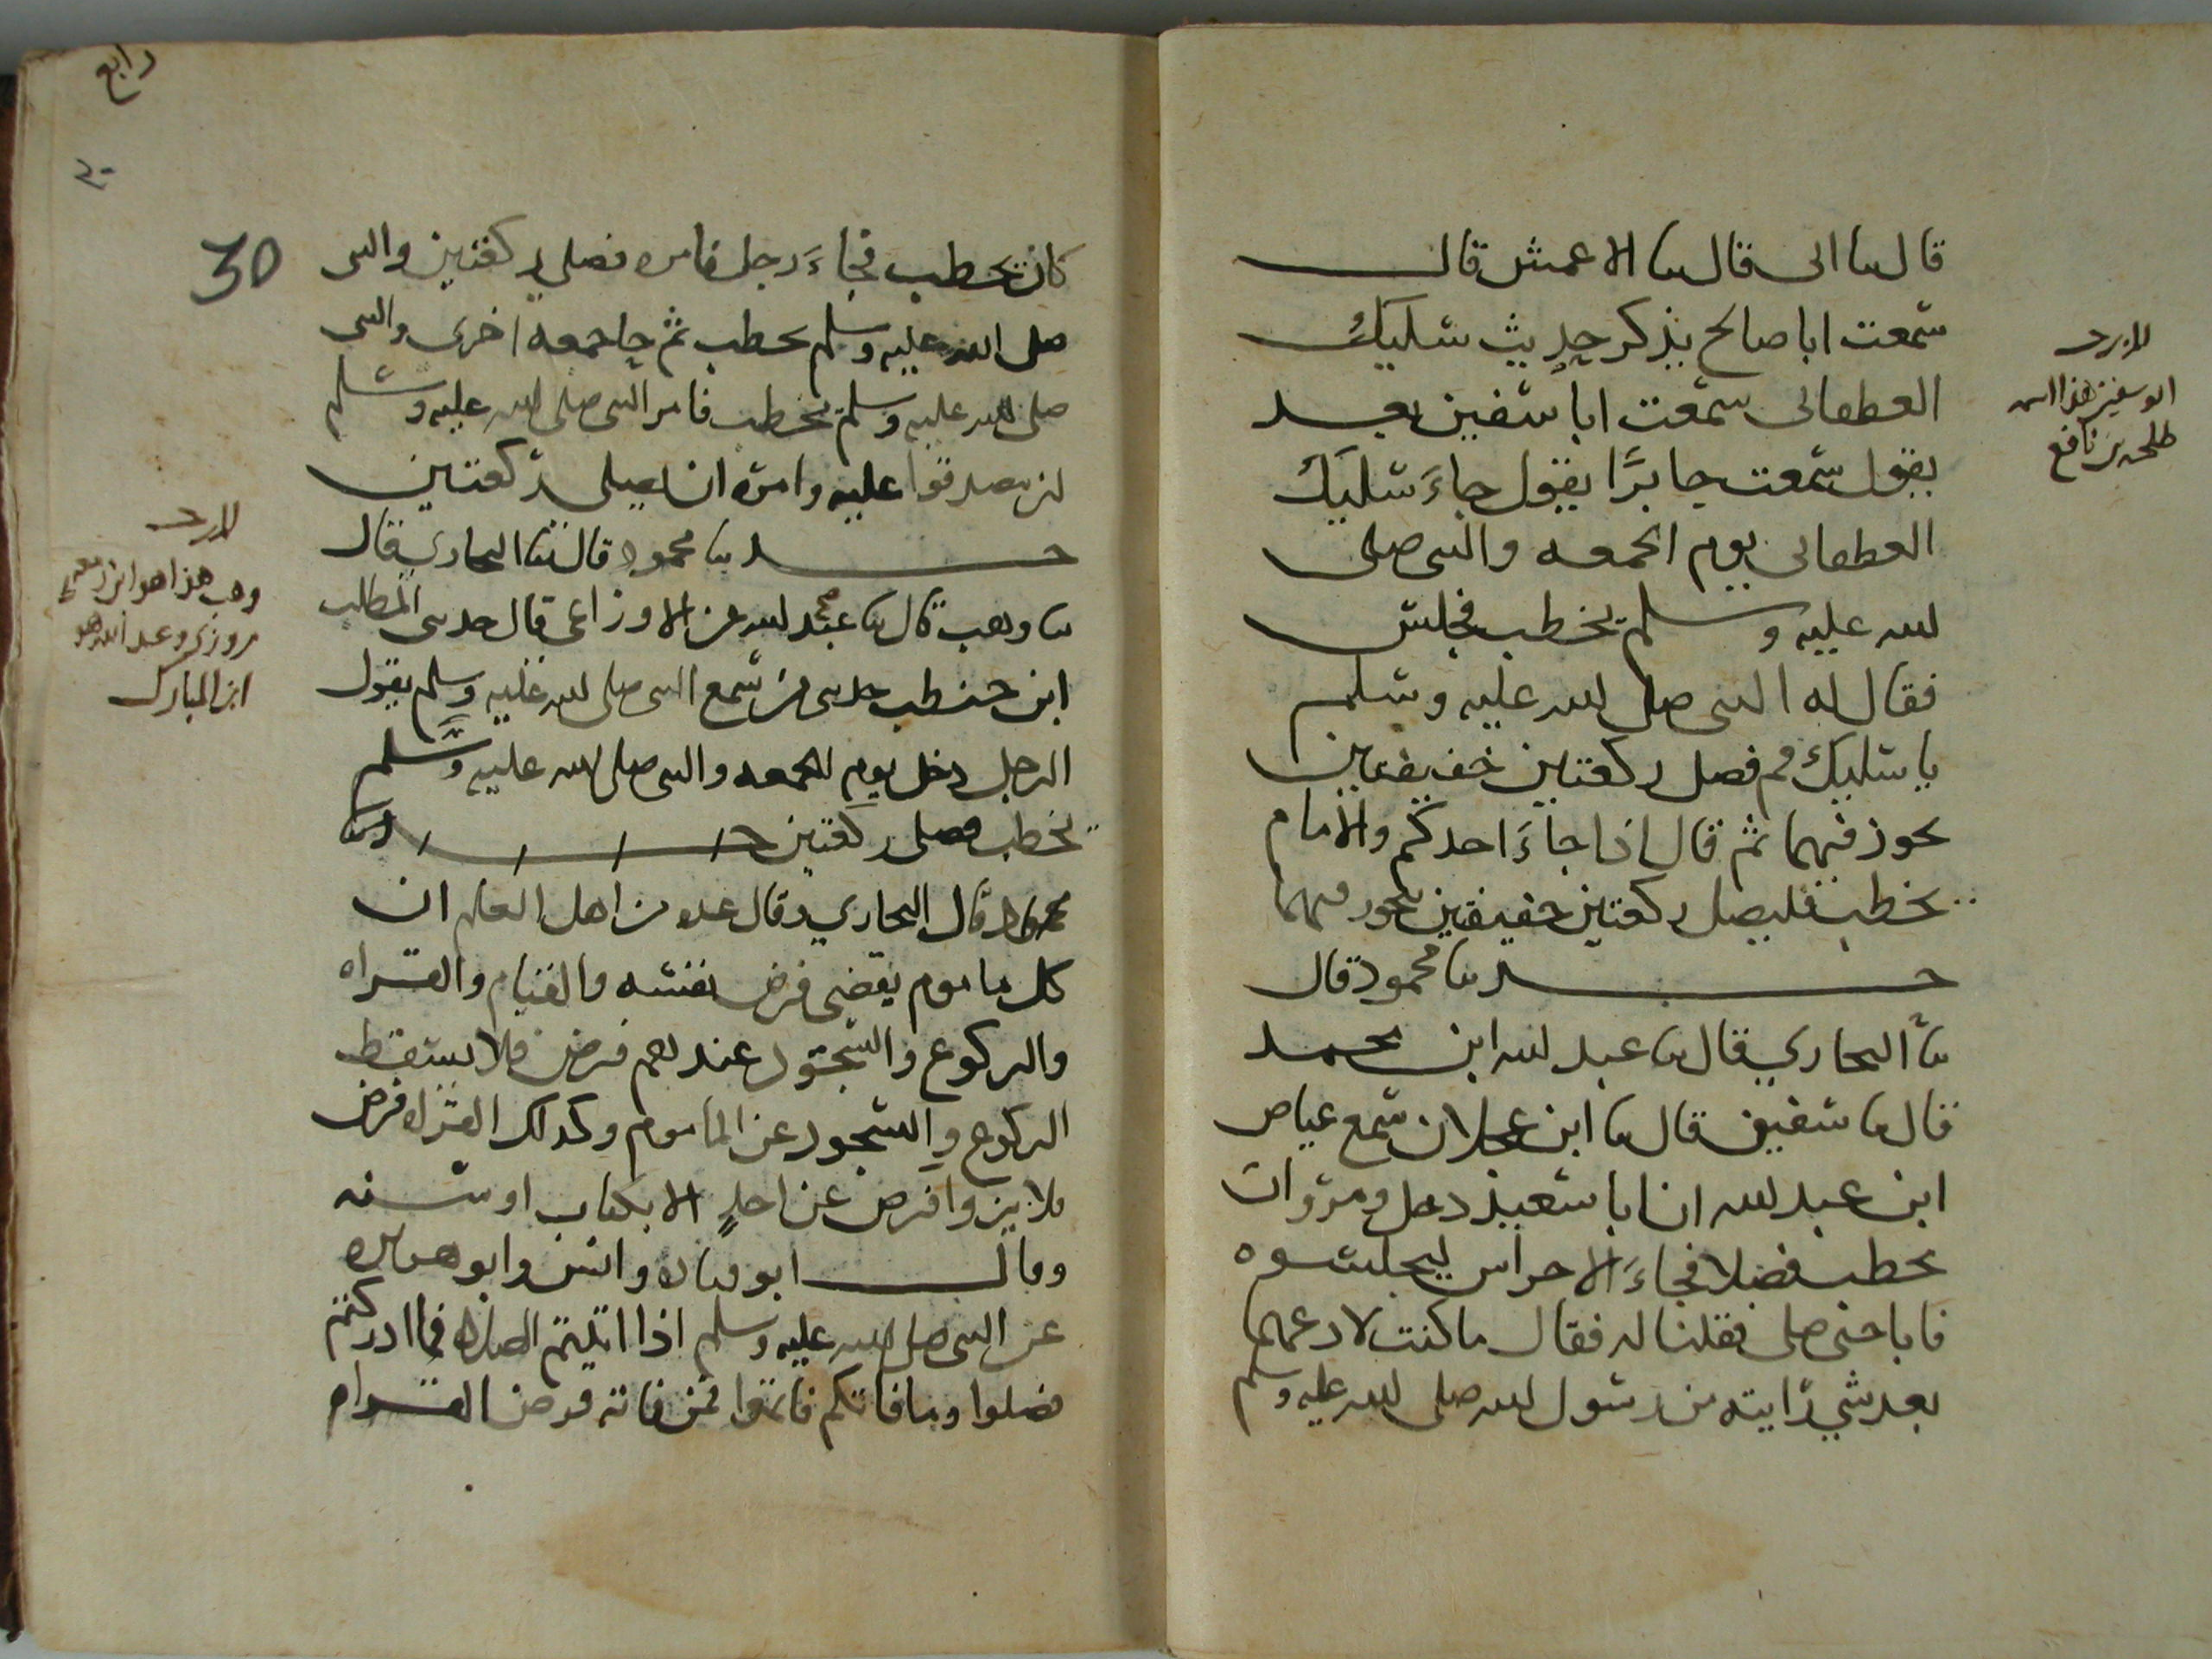 قال سا ابى قال سا الاعمش قال
سمعت ابا صالح يذكر حديث سليك
الغطفانى سمعت ابا سفين بعد
يقول سمعت جابرًا يقول جاءَ سليك
الغطفانى يوم الجمعه والنبى صلى
الله عليه وسلم يخطب فجلس
فقال له النبى صلى الله عليه وسلم
يا سليك قم فصل ركعتين خفيفتين
تجوز فيهما ثم قال اذا جاءَ احدكم والامام
يخطب فليصل ركعتين خفيفتين يتجوز فيهما
حدثنا محمود قال
ثنا البخاري قال ثنا عبد الله ابن محمد
قال ثنا سفين قال ثنا ابن عجلان سمع عياض
ابن عبد الله ان ابا سعيد دخل ومروان
يخطب فصلا فجاءَ الاحراس ليجلسوه
فابا حتى صلى فقلنا له فقال ما كنت لادعهما
بعد شي رايته من رسول الله صلى الله عليه وسلم
ابو سفين هذا اسمه
طلحه بن نافع
رابع
٣٠
30
كان يخطب فجاءَ رجل فامره فصلى ركعتين والنبى
صلى الله عليه وسلم يخطب ثم جا جمعه اخرى والنبى
صلى الله عليه وسلم يخطب فامر النبى صلى الله عليه وسلم
ان يصدقوا عليه وامره ان يصلى ركعتين
حدثنا محمود قال ثنا البخاري قال
ثنا وهب قال ثنا عبد الله عن الاوزاعى قال حدثنى المطلب
ابن حنطب حدثنى من سمع النبى صلى الله عليه وسلم يقول
الرجل دخل يوم الجمعه والنبى صلى الله عليه وسلم
يخطب فصلى ركعتين حدثنا
محمود قال البخاري وقال عده من اهل العلم ان
كل ماموم يقضى فرض نفسه والقيام والقراه
والركوع والسجود عندهم فرض فلا يسقط
الركوع والسجود عن الماموم وكذلك القراه فرض
فلا يزول فرض عن احدٍ الا بكتاب او سنه
وقال ابو قتاده وانس وابو هريره
عن النبى صلى الله عليه وسلم اذا اتيتم الصلاه فما ادركتم
فصلوا وما فاتكم فاتموا فمن فاته فرض القراه
وهب هذا هو ابن زمعه
مروزى وعبد الله هو
ابن المبارك